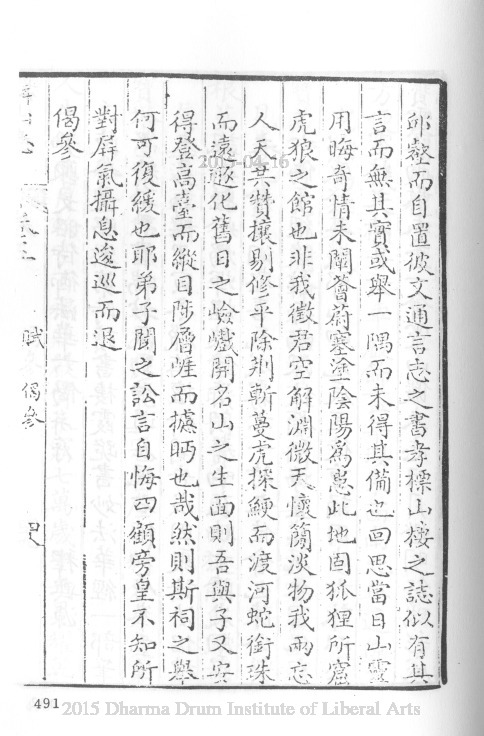 邱壑而自置彼文通言志之書孝標山棲之誌似有其
言而無其實或舉一隅而未得其備也回思當日山靈
用晦奇情未闡薈蔚塞塗陰陽為患此地固狐狸所窟
虎狼之館也非我徵君空解淵微天懷簡淡物我兩忘
人天共贊攘剔修平除荆斬蔓虎探鯁而渡河蛇銜珠
而遠遯化舊日之嶮巇開名山之生面則吾與子又安
得登高臺而縱目陟層崕而攄眄也哉然則斯祠之舉
何可復緩也耶弟子聞之訟言自悔四顧旁皇不知所
對屏氣攝息逡巡而退
偈參
賦 偈參
491
2015-04-16
2015 Dharma Drum Institute of Liberal Arts